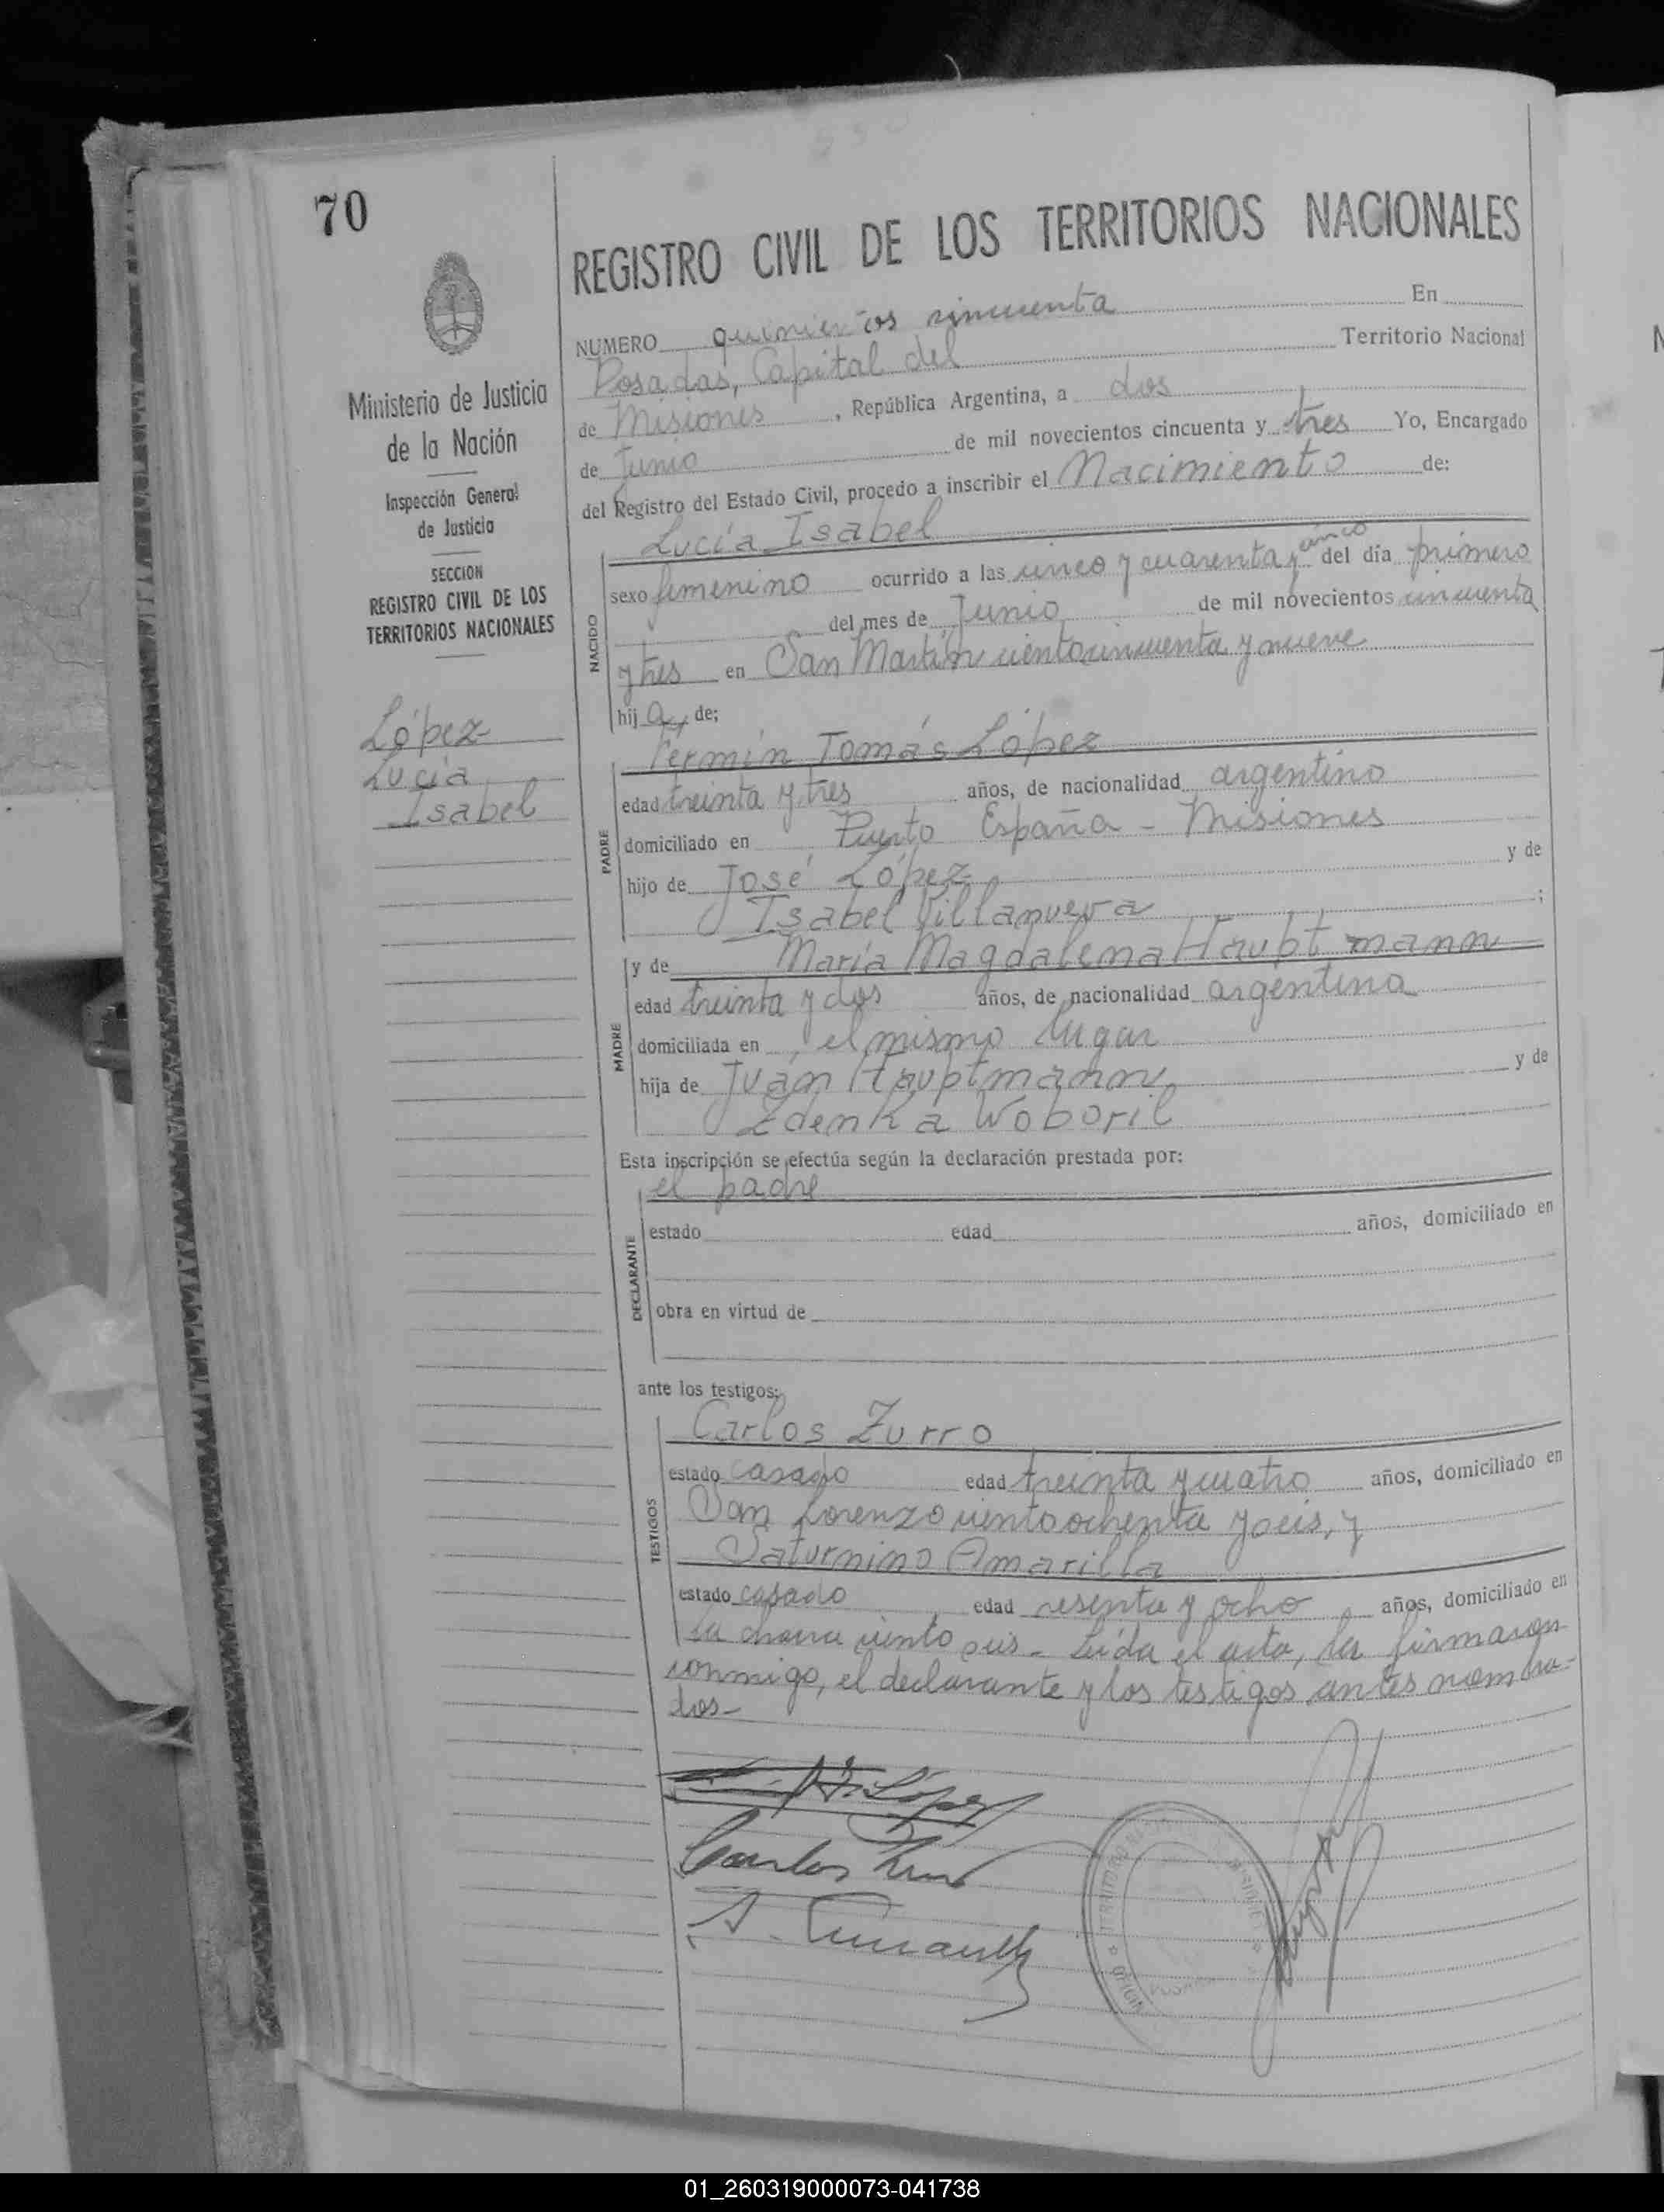 70
REGISTRO CIVIL DE LOS TERRITORIOS NACIONALES
NUMERO quinientos cincuenta En
Posadas, Capital del Territorio Nacional
de Misiones, República Argentina, a dos
de Junio de mil novecientos cincuenta y tres Yo, Encargado
del Registro del Estado Civil, procedo a inscribir el Nacimiento de:
Ministerio de Justicia
de la Nación
Inspección General
de Justicia
SECCION
REGISTRO CIVIL DE LOS
TERRITORIOS NACIONALES
López
Lucía
Isabel
NACIDO
Lucía Isabel
sexo femenino ocurrido a las cinco y cuarenta y cinco del día primero
del mes de Junio de mil novecientos cincuenta
y tres en San Martín ciento cincuenta y nueve
hij a de;
PADRE
Fermín Tomás López
edad treinta y tres años, de nacionalidad argentino
domiciliado en Puerto España - Misiones
hijo de José López y de
Isabel Villanueva ;
MADRE
y de María Magdalena Hauptmann
edad treinta y dos años, de nacionalidad argentina
domiciliada en el mismo lugar
hija de Juan Hauptmann y de
Zdenka Woboril
Esta inscripción se efectúa según la declaración prestada por:
DECLARANTE
el padre
estado edad años, domiciliado en
obra en virtud de
ante los testigos:
TESTIGOS
Carlos Zurro
estado casado edad treinta y cuatro años, domiciliado en
San Lorenzo ciento ochenta y seis, y
Saturnino Amarilla
estado casado, edad sesenta y ocho años, domiciliado en
la chacra ciento seis - Leída el acta, la firmaron
conmigo, el declarante y los testigos antes nombra-
dos-
López
Carlos Zurro
S. Amarilla
TERRITORIO
MISIONES
OFICINA
POSADAS
01_260319000073-041738